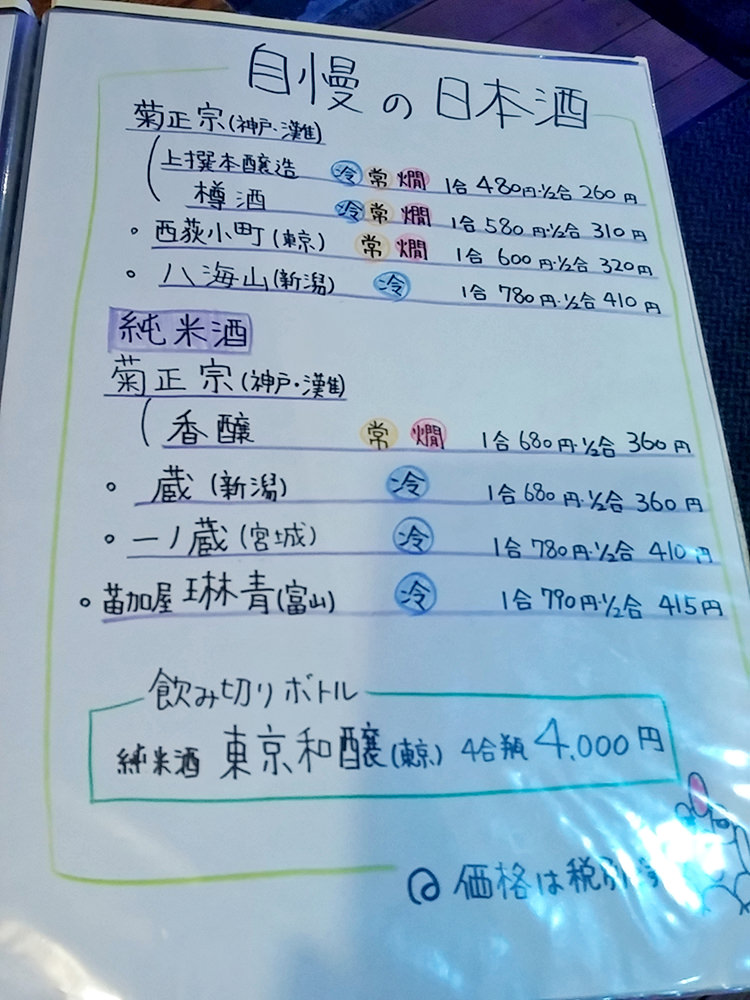 自慢の日本酒
菊正宗(神戸・灘)
上撰本醸造 冷 常 燗 1合 480円・1/2合 260円
樽酒 冷 常 燗 1合 580円・1/2合 310円
。西荻小町(東京) 常 燗 1合 600円・1/2合 320円
。八海山(新潟) 冷 1合 780円・1/2合 410円
純米酒
菊正宗(神戸・灘)
香醸 常 燗 1合 680円・1/2合 360円
。蔵(新潟) 冷 1合 680円・1/2合 360円
。一ノ蔵(宮城) 冷 1合 780円・1/2合 410円
。苗加屋 琳青(富山) 冷 1合 790円・1/2合 415円
飲み切りボトル
純米酒 東京和醸(東京) 4合瓶 4.000円
価格は税別